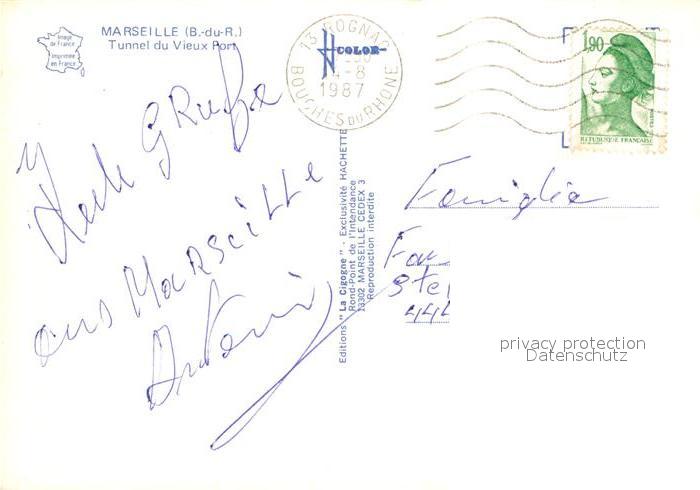 MARSEILLE (B.-du-R.)
Tunnel du Vieux Port
Image de France
Imprimée en France
13 ROGNAC
4-8
1987
BOUCHES DU RHONE
COLOR
1,90
REPUBLIQUE FRANÇAISE
GRüße
aus MARSEiLLe
Editions "La Cigogne" - Exclusivité HACHETTE
Rond-Point de l'Intendance
13302 MARSEILLE CEDEX 3
Reproduction interdite
Famiglia
Fau
Ste
444
privacy protection
Datenschutz